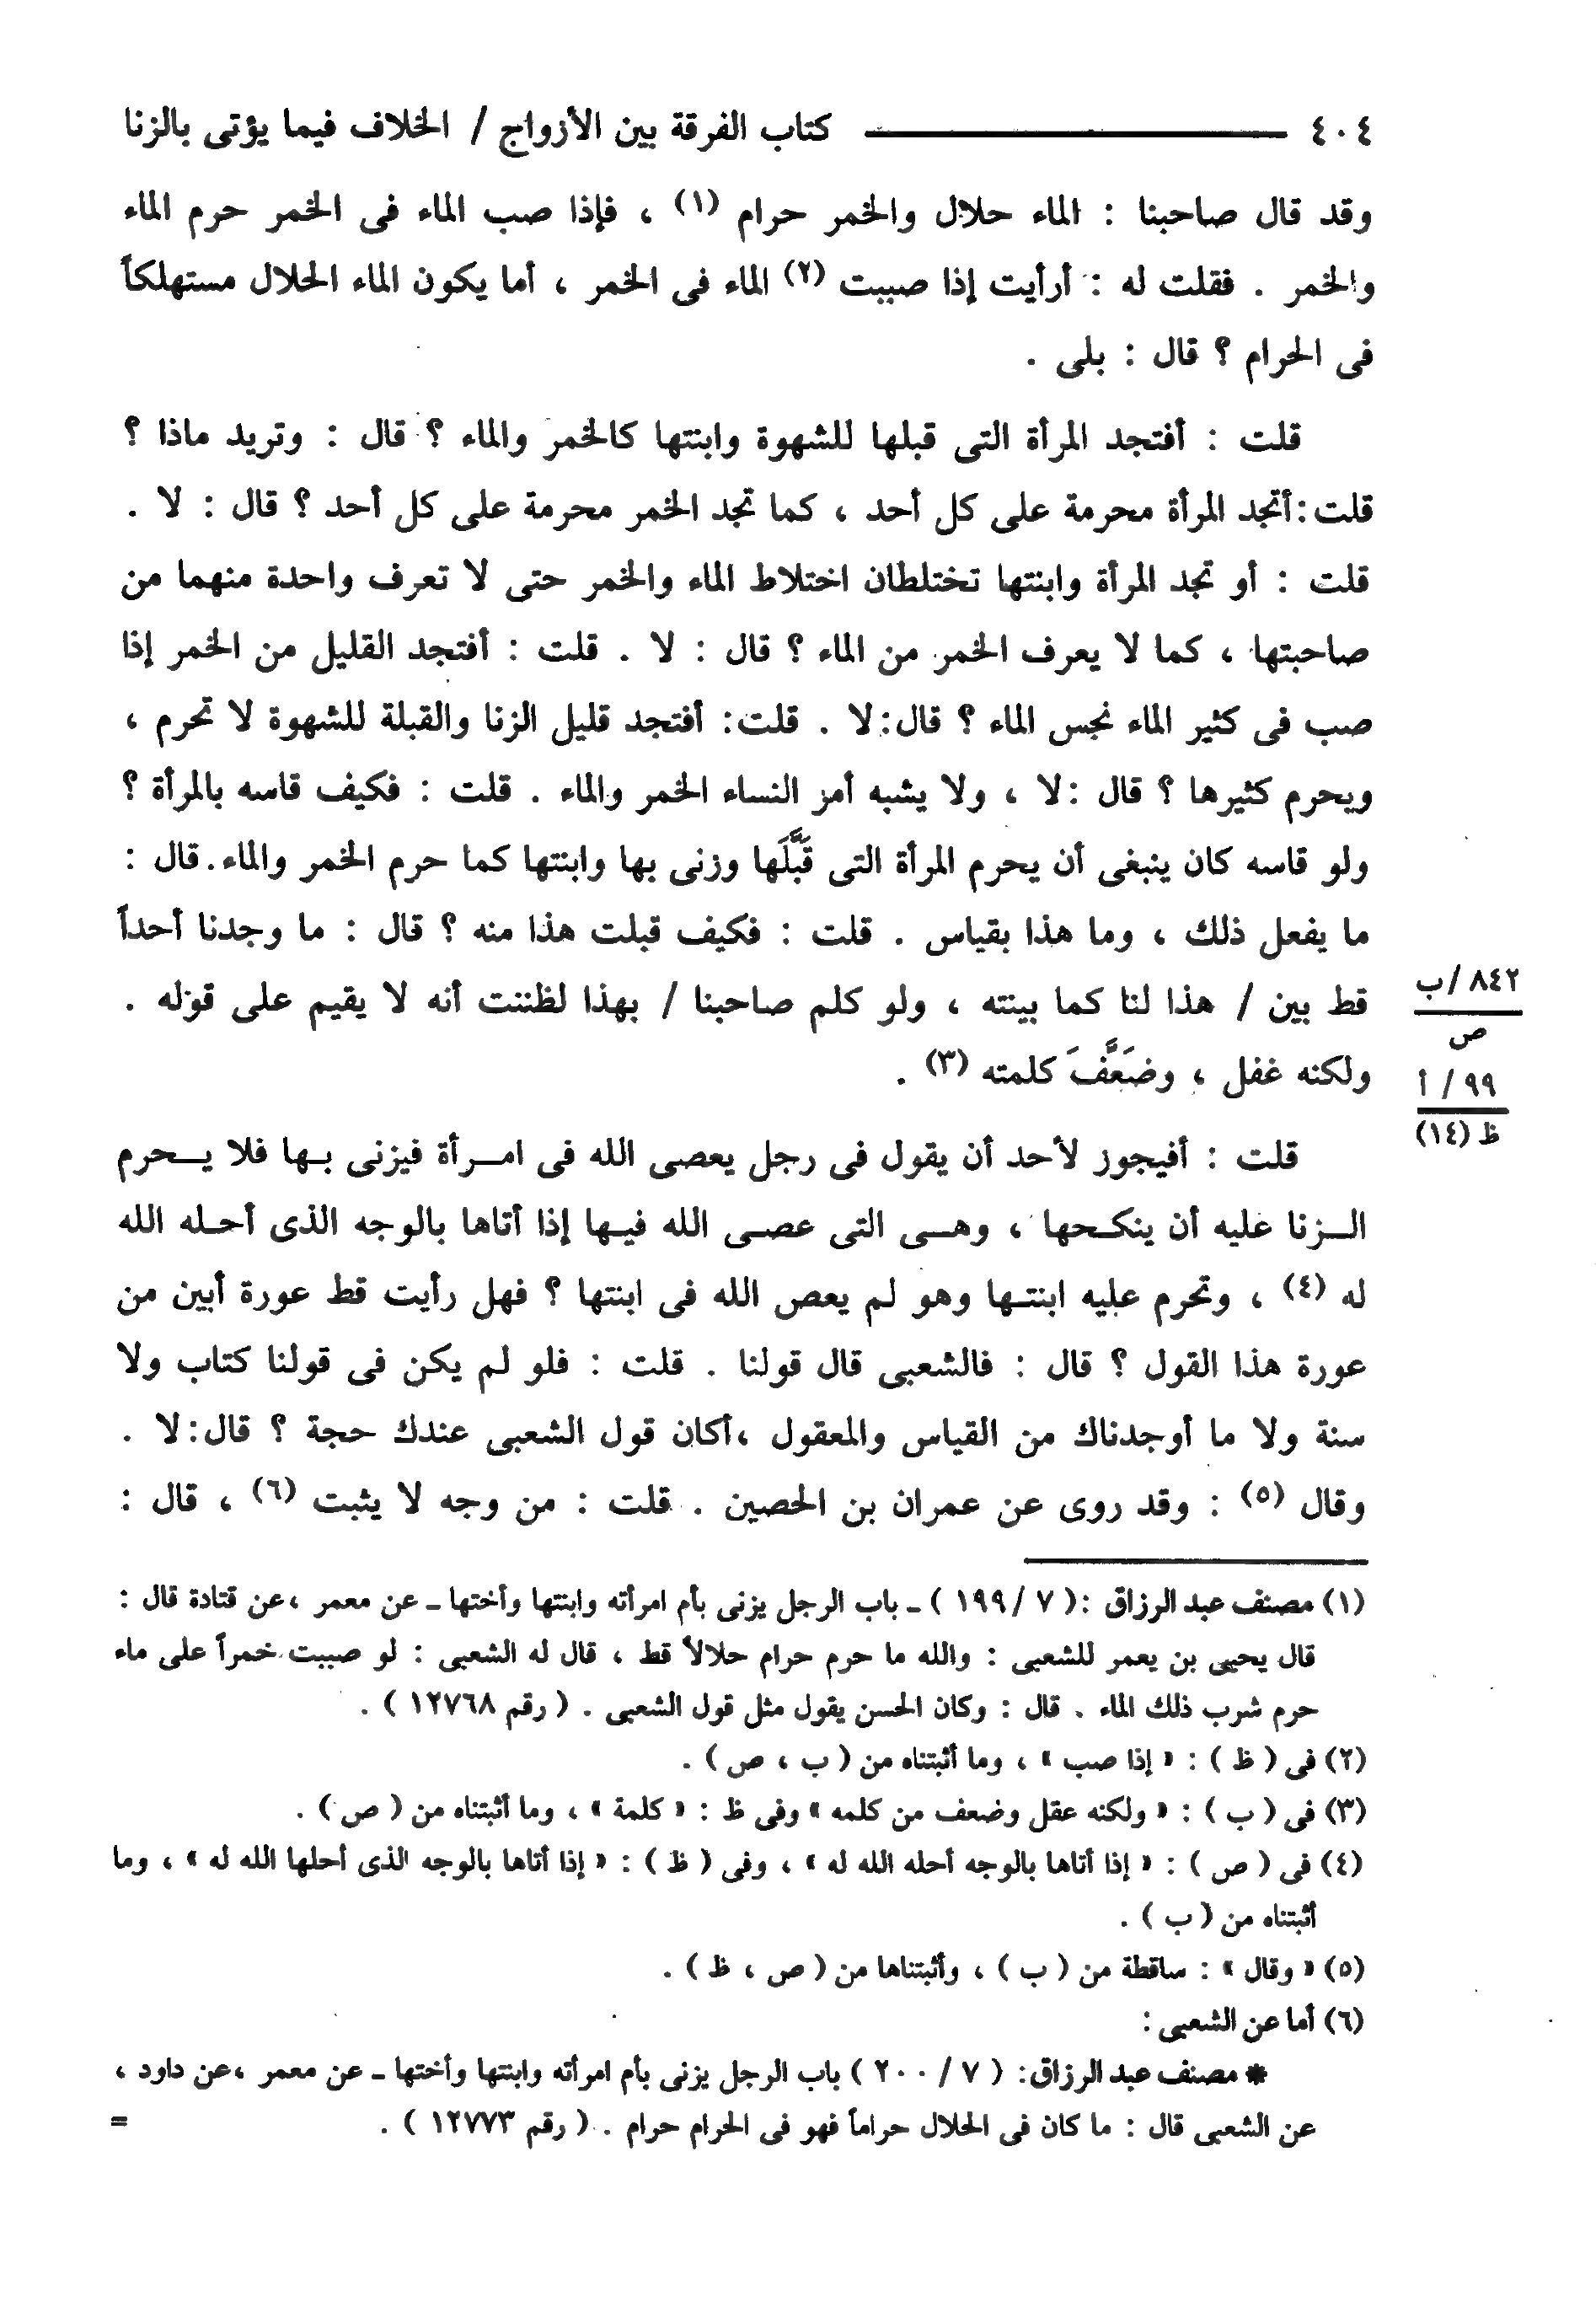 ٤٠٤ كتاب الفرقة بين الأزواج / الخلاف فيما يؤتى بالزنا
وقد قال صاحبنا : الماء حلال والخمر حرام (١) ، فإذا صب الماء فى الخمر حرم الماء
والخمر . فقلت له : أرأيت إذا صببت (٢) الماء فى الخمر ، أما يكون الماء الحلال مستهلكاً
فى الحرام ؟ قال : بلى .
قلت : أفتجد المرأة التى قبلها للشهوة وابنتها كالخمر والماء ؟ قال : وتريد ماذا ؟
قلت : أتجد المرأة محرمة على كل أحد ، كما تجد الخمر محرمة على كل أحد ؟ قال : لا .
قلت : أو تجد المرأة وابنتها تختلطان اختلاط الماء والخمر حتى لا تعرف واحدة منهما من
صاحبتها ، كما لا يعرف الخمر من الماء ؟ قال : لا . قلت : أفتجد القليل من الخمر إذا
صب فى كثير الماء نجس الماء ؟ قال : لا . قلت : أفتجد قليل الزنا والقبلة للشهوة لا تحرم ،
ويحرم كثيرها ؟ قال : لا ، ولا يشبه أمر النساء الخمر والماء . قلت : فكيف قاسه بالمرأة ؟
ولو قاسه كان ينبغى أن يحرم المرأة التى قَبَّلَها وزنى بها وابنتها كما حرم الخمر والماء . قال :
ما يفعل ذلك ، وما هذا بقياس . قلت : فكيف قبلت هذا منه ؟ قال : ما وجدنا أحداً
قط بين / هذا لنا كما بينته ، ولو كلم صاحبنا / بهذا لظننت أنه لا يقيم على قوله .
٨٤٢ / ب
ص
ولكنه غفل ، وضَعَّفَ كلمته (٣) .
٩٩ / أ
ظ (١٤)
قلت : أفيجوز لأحد أن يقول فى رجل يعصى الله فى امـرأة فيزنى بـها فلا يـحرم
الـزنا عليه أن ينكـحها ، وهـى التى عصـى الله فيـها إذا أتاها بالوجه الذى أحـله الله
له (٤) ، وتحرم عليه ابنتـها وهو لم يعص الله فى ابنتها ؟ فهل رأيت قط عورة أبين من
عورة هذا القول ؟ قال : فالشعبى قال قولنا . قلت : فلو لم يكن فى قولنا كتاب ولا
سنة ولا ما أوجدناك من القياس والمعقول ، أكان قول الشعبى عندك حجة ؟ قال : لا .
وقال (٥) : وقد روى عن عمران بن الحصين . قلت : من وجه لا يثبت (٦) ، قال :
(١) مصنف عبد الرزاق : ( ٧ / ١٩٩ ) ـ باب الرجل يزنى بأم امرأته وابنتها وأختها ـ عن معمر ، عن قتادة قال :
قال يحيى بن يعمر للشعبى : والله ما حرم حرام حلالاً قط ، قال له الشعبى : لو صببت خمراً على ماء
حرم شرب ذلك الماء . قال : وكان الحسن يقول مثل قول الشعبى . ( رقم ١٢٧٦٨ ) .
(٢) فى ( ظ ) : « إذا صب » ، وما أثبتناه من ( ب ، ص ) .
(٣) فى ( ب ) : « ولكنه عقل وضعف من كلمه » وفى ظ : « كلمة » ، وما أثبتناه من ( ص ) .
(٤) فى ( ص ) : « إذا أتاها بالوجه أحله الله له » ، وفى ( ظ ) : « إذا أتاها بالوجه الذى أحلها الله له » ، وما
أثبتناه من ( ب ) .
(٥) « وقال » : ساقطة من ( ب ) ، وأثبتناها من ( ص ، ظ ) .
(٦) أما عن الشعبى :
* مصنف عبد الرزاق : ( ٧ / ٢٠٠ ) باب الرجل يزنى بأم امرأته وابنتها وأختها ـ عن معمر ، عن داود ،
عن الشعبى قال : ما كان فى الحلال حراماً فهو فى الحرام حرام . ( رقم ١٢٧٧٣ ) . =